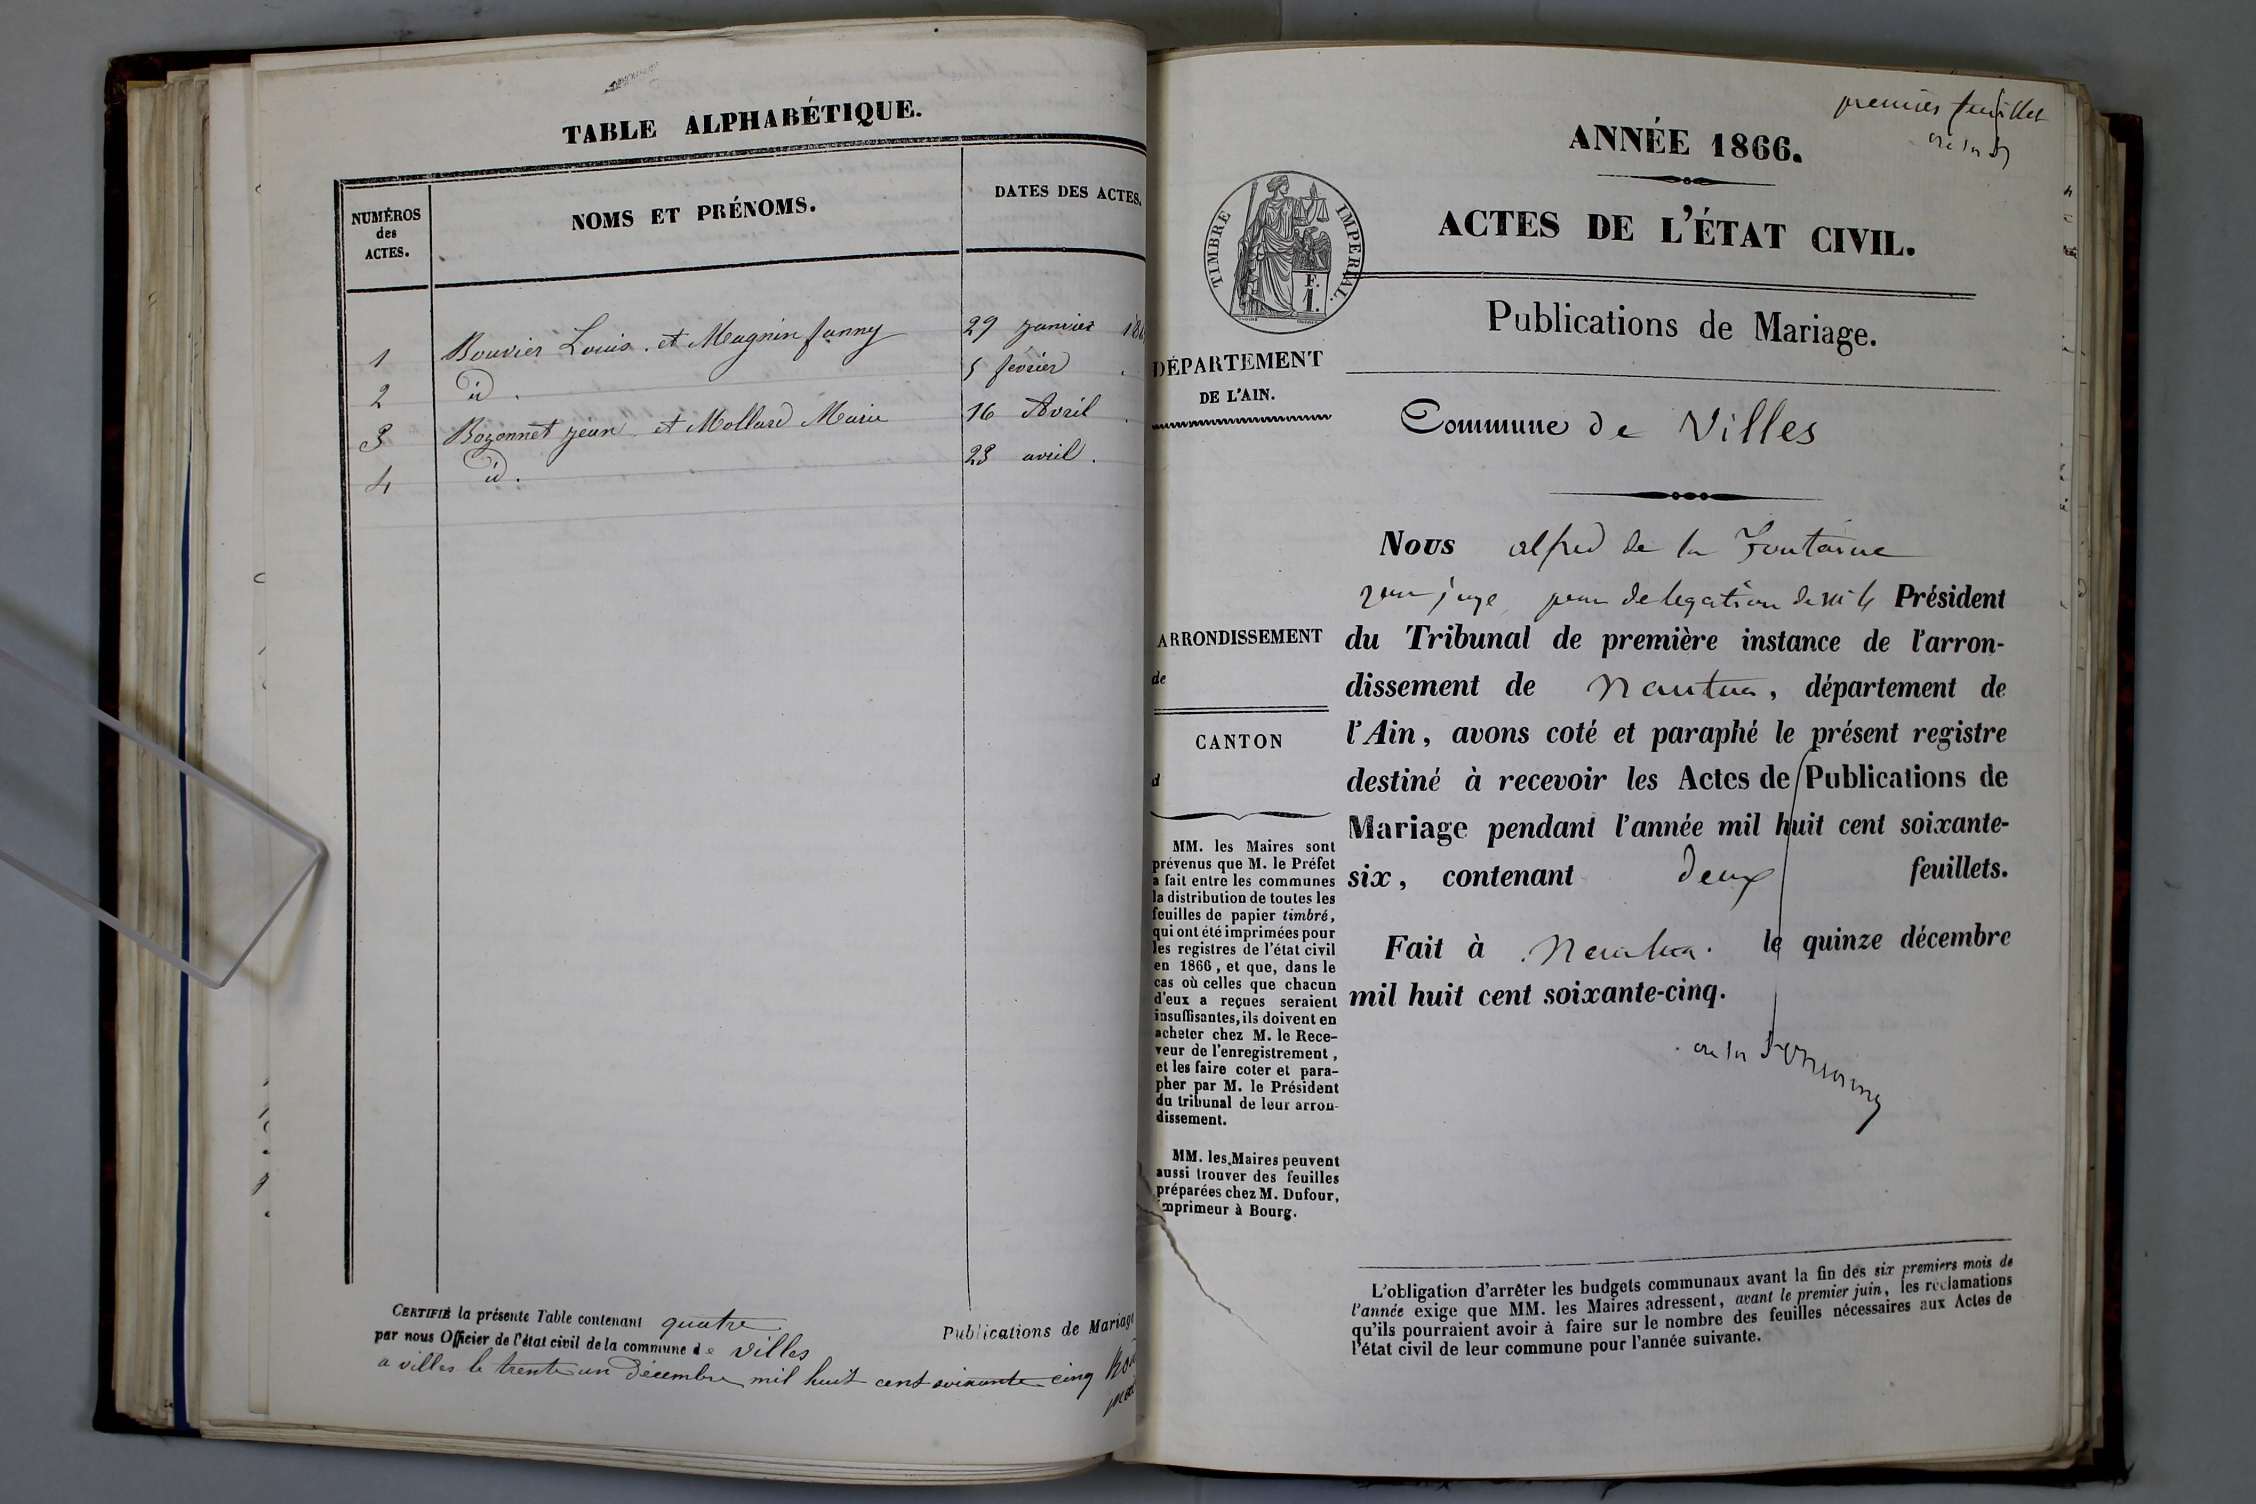 TABLE ALPHABÉTIQUE.
NUMÉROS
des
ACTES.
NOMS ET PRÉNOMS.
DATES DES ACTES.
1 Bouvier Louis et Meugnin fanny 29 janvier
2 id. 5 février
3 Bozonnet jean et Mollard Marie 16 Avril
4 id. 23 avril.
CERTIFIÉ la présente Table contenant quatre Publications de Mariage
par nous Officier de l'état civil de la commune de villes
a villes le trente un Décembre mil huit cent soixante cinq
premier feuillet
ANNÉE 1866.
ACTES DE L'ÉTAT CIVIL.
TIMBRE IMPERIAL.
F.
1.
Publications de Mariage.
DÉPARTEMENT
DE L'AIN.
Commune de Villes
ARRONDISSEMENT
de
CANTON
d
MM. les Maires sont
prévenus que M. le Préfet
a fait entre les communes
la distribution de toutes les
feuilles de papier timbré,
qui ont été imprimées pour
les registres de l'état civil
en 1866, et que, dans le
cas où celles que chacun
d'eux a reçues seraient
insuffisantes, ils doivent en
acheter chez M. le Rece-
veur de l'enregistrement,
et les faire coter et para-
pher par M. le Président
du tribunal de leur arron-
dissement.
MM. les Maires peuvent
aussi trouver des feuilles
préparées chez M. Dufour,
imprimeur à Bourg.
Nous alfred de la Fontaine
juge delegation Président
du Tribunal de première instance de l'arron-
dissement de Nantua, département de
l'Ain, avons coté et paraphé le présent registre
destiné à recevoir les Actes de Publications de
Mariage pendant l'année mil huit cent soixante-
six, contenant deux feuillets.
Fait à Nantua. le quinze décembre
mil huit cent soixante-cinq.
L'obligation d'arrêter les budgets communaux avant la fin des six premiers mois de
l'année exige que MM. les Maires adressent, avant le premier juin, les réclamations
qu'ils pourraient avoir à faire sur le nombre des feuilles nécessaires aux Actes de
l'état civil de leur commune pour l'année suivante.